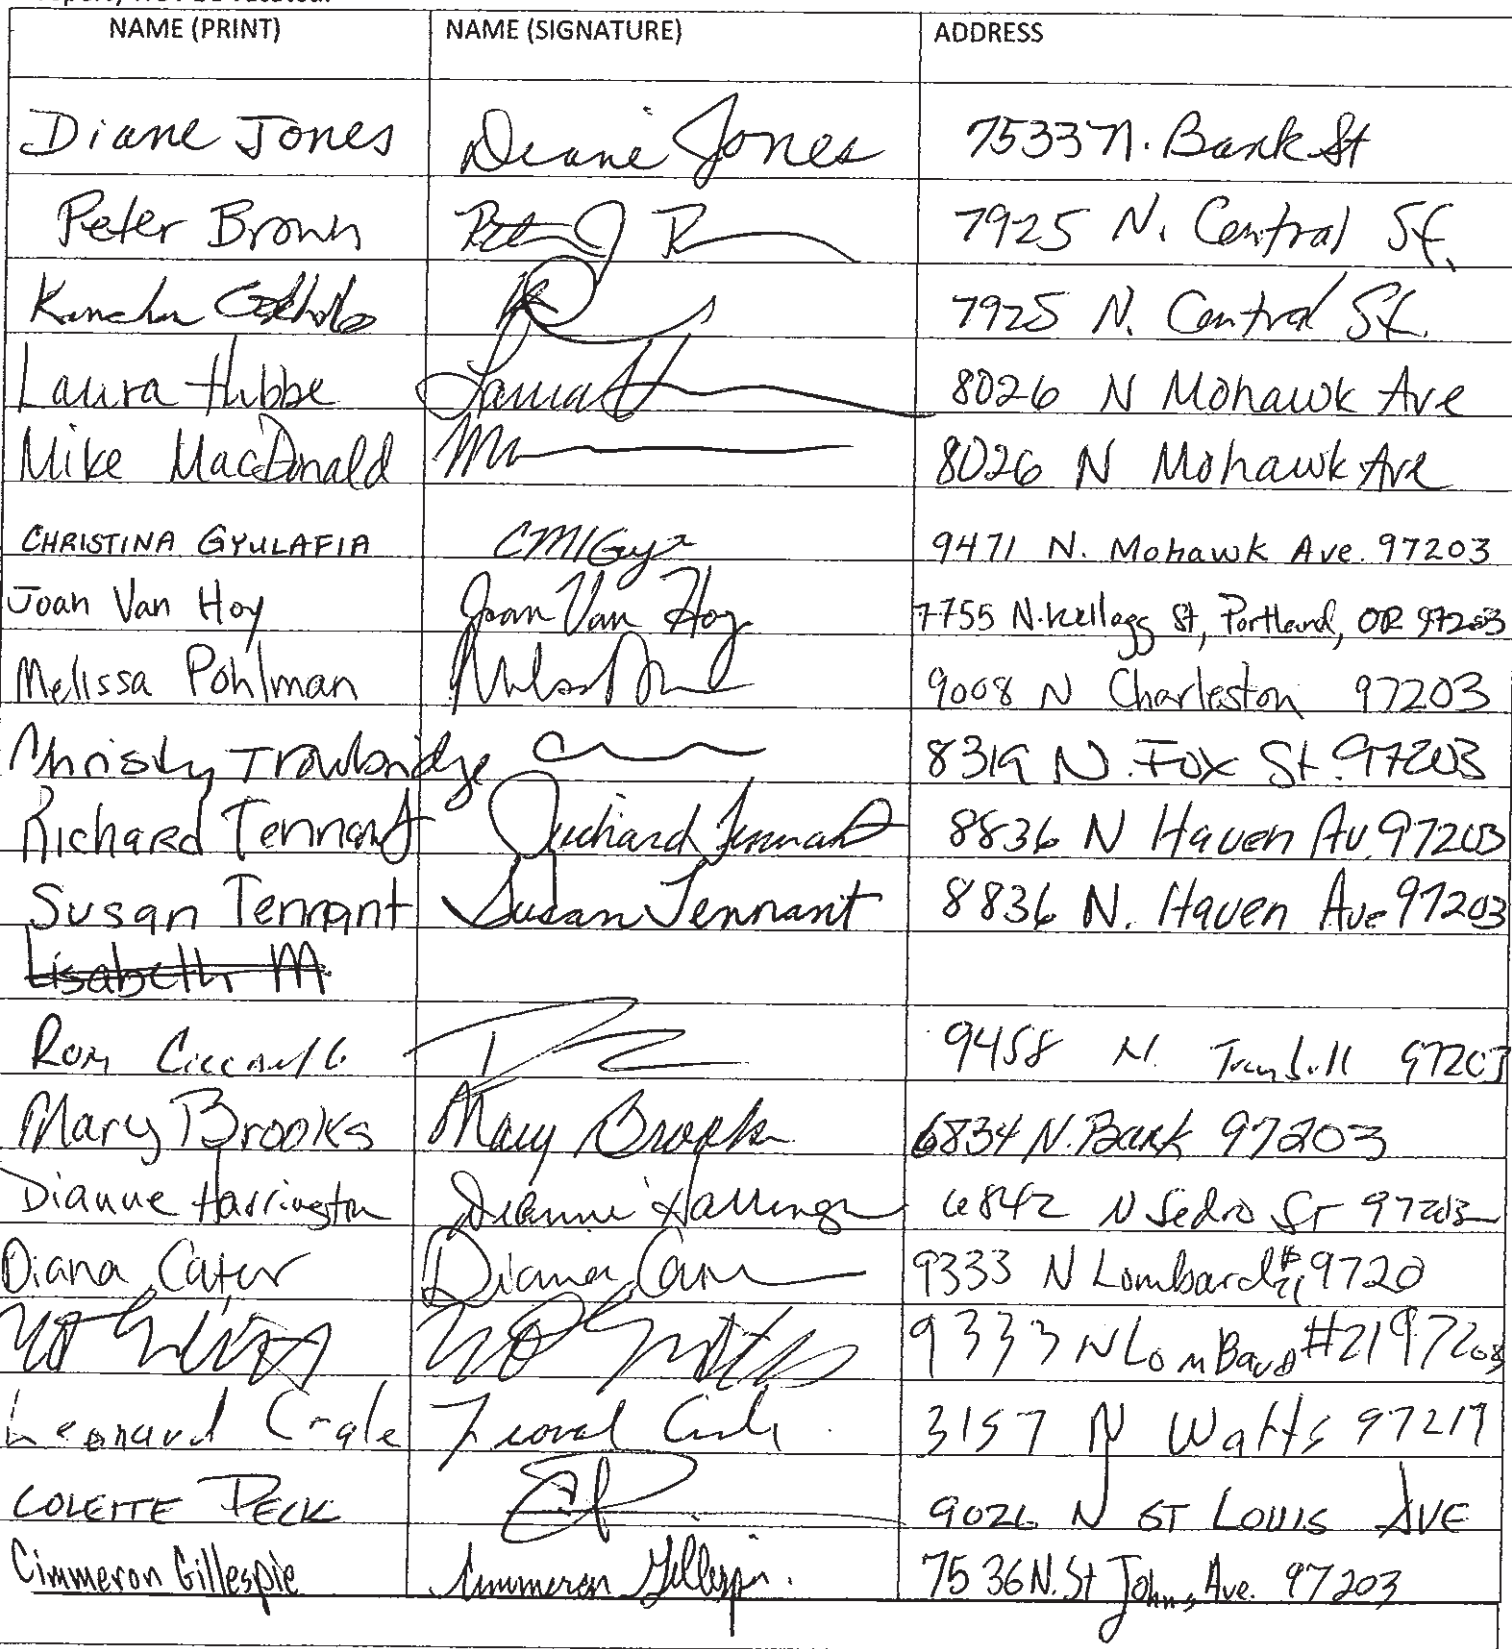 NAME (PRINT) NAME (SIGNATURE) ADDRESS
Diane Jones Diane Jones 7533 N. Bank St
Peter Brown 7925 N. Central St.
7925 N. Central St.
Laura Hibbe Laura H 8026 N Mohawk Ave
Mike MacDonald 8026 N Mohawk Ave
CHRISTINA GYULAFIA 9471 N. Mohawk Ave. 97203
Joan Van Hoy Joan Van Hoy 7755 N. Kellogg St, Portland, OR 97203
Melissa Pohlman 9008 N Charleston 97203
Christy Trowbridge 8319 N. Fox St. 97203
Richard Tennant Richard Tennant 8836 N Haven Av. 97203
Susan Tennant Susan Tennant 8836 N. Haven Ave 97203
Lisabeth M.
Ron 9458 N. Trumbull 97203
Mary Brooks Mary Brooks 6834 N. Bank 97203
Dianne Harrington Dianne Harrington 6842 N Sedro St 97203
Diana Cater Diana 9333 N Lombard 9720
9333 N Lombard #21 97203
Leonard 3157 N Watts 97217
COLETTE PECK 9026 N ST LOUIS AVE
Cimmeron Gillespie Cimmeron Gillespie. 7536 N. St Johns Ave. 97203